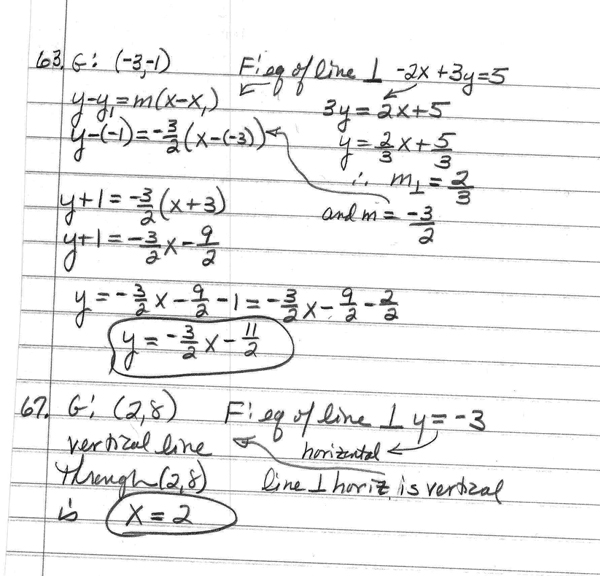 63. G: (-3,-1) F: eq of line ⊥ -2x+3y=5
y-y₁=m(x-x₁) 3y=2x+5
y-(-1)=-3/2(x-(-3)) y=2/3x+5/3
∴ m⊥=2/3
y+1=-3/2(x+3) and m=-3/2
y+1=-3/2x-9/2
y=-3/2x-9/2-1=-3/2x-9/2-2/2
y=-3/2x-11/2
67. G: (2,8) F: eq of line ⊥ y=-3
vertical line horizontal
through (2,8) line ⊥ horiz. is vertical
is x=2